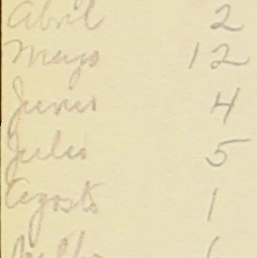 Abril 2
Mayo 12
Junio 4
Julio 5
Agosto 1